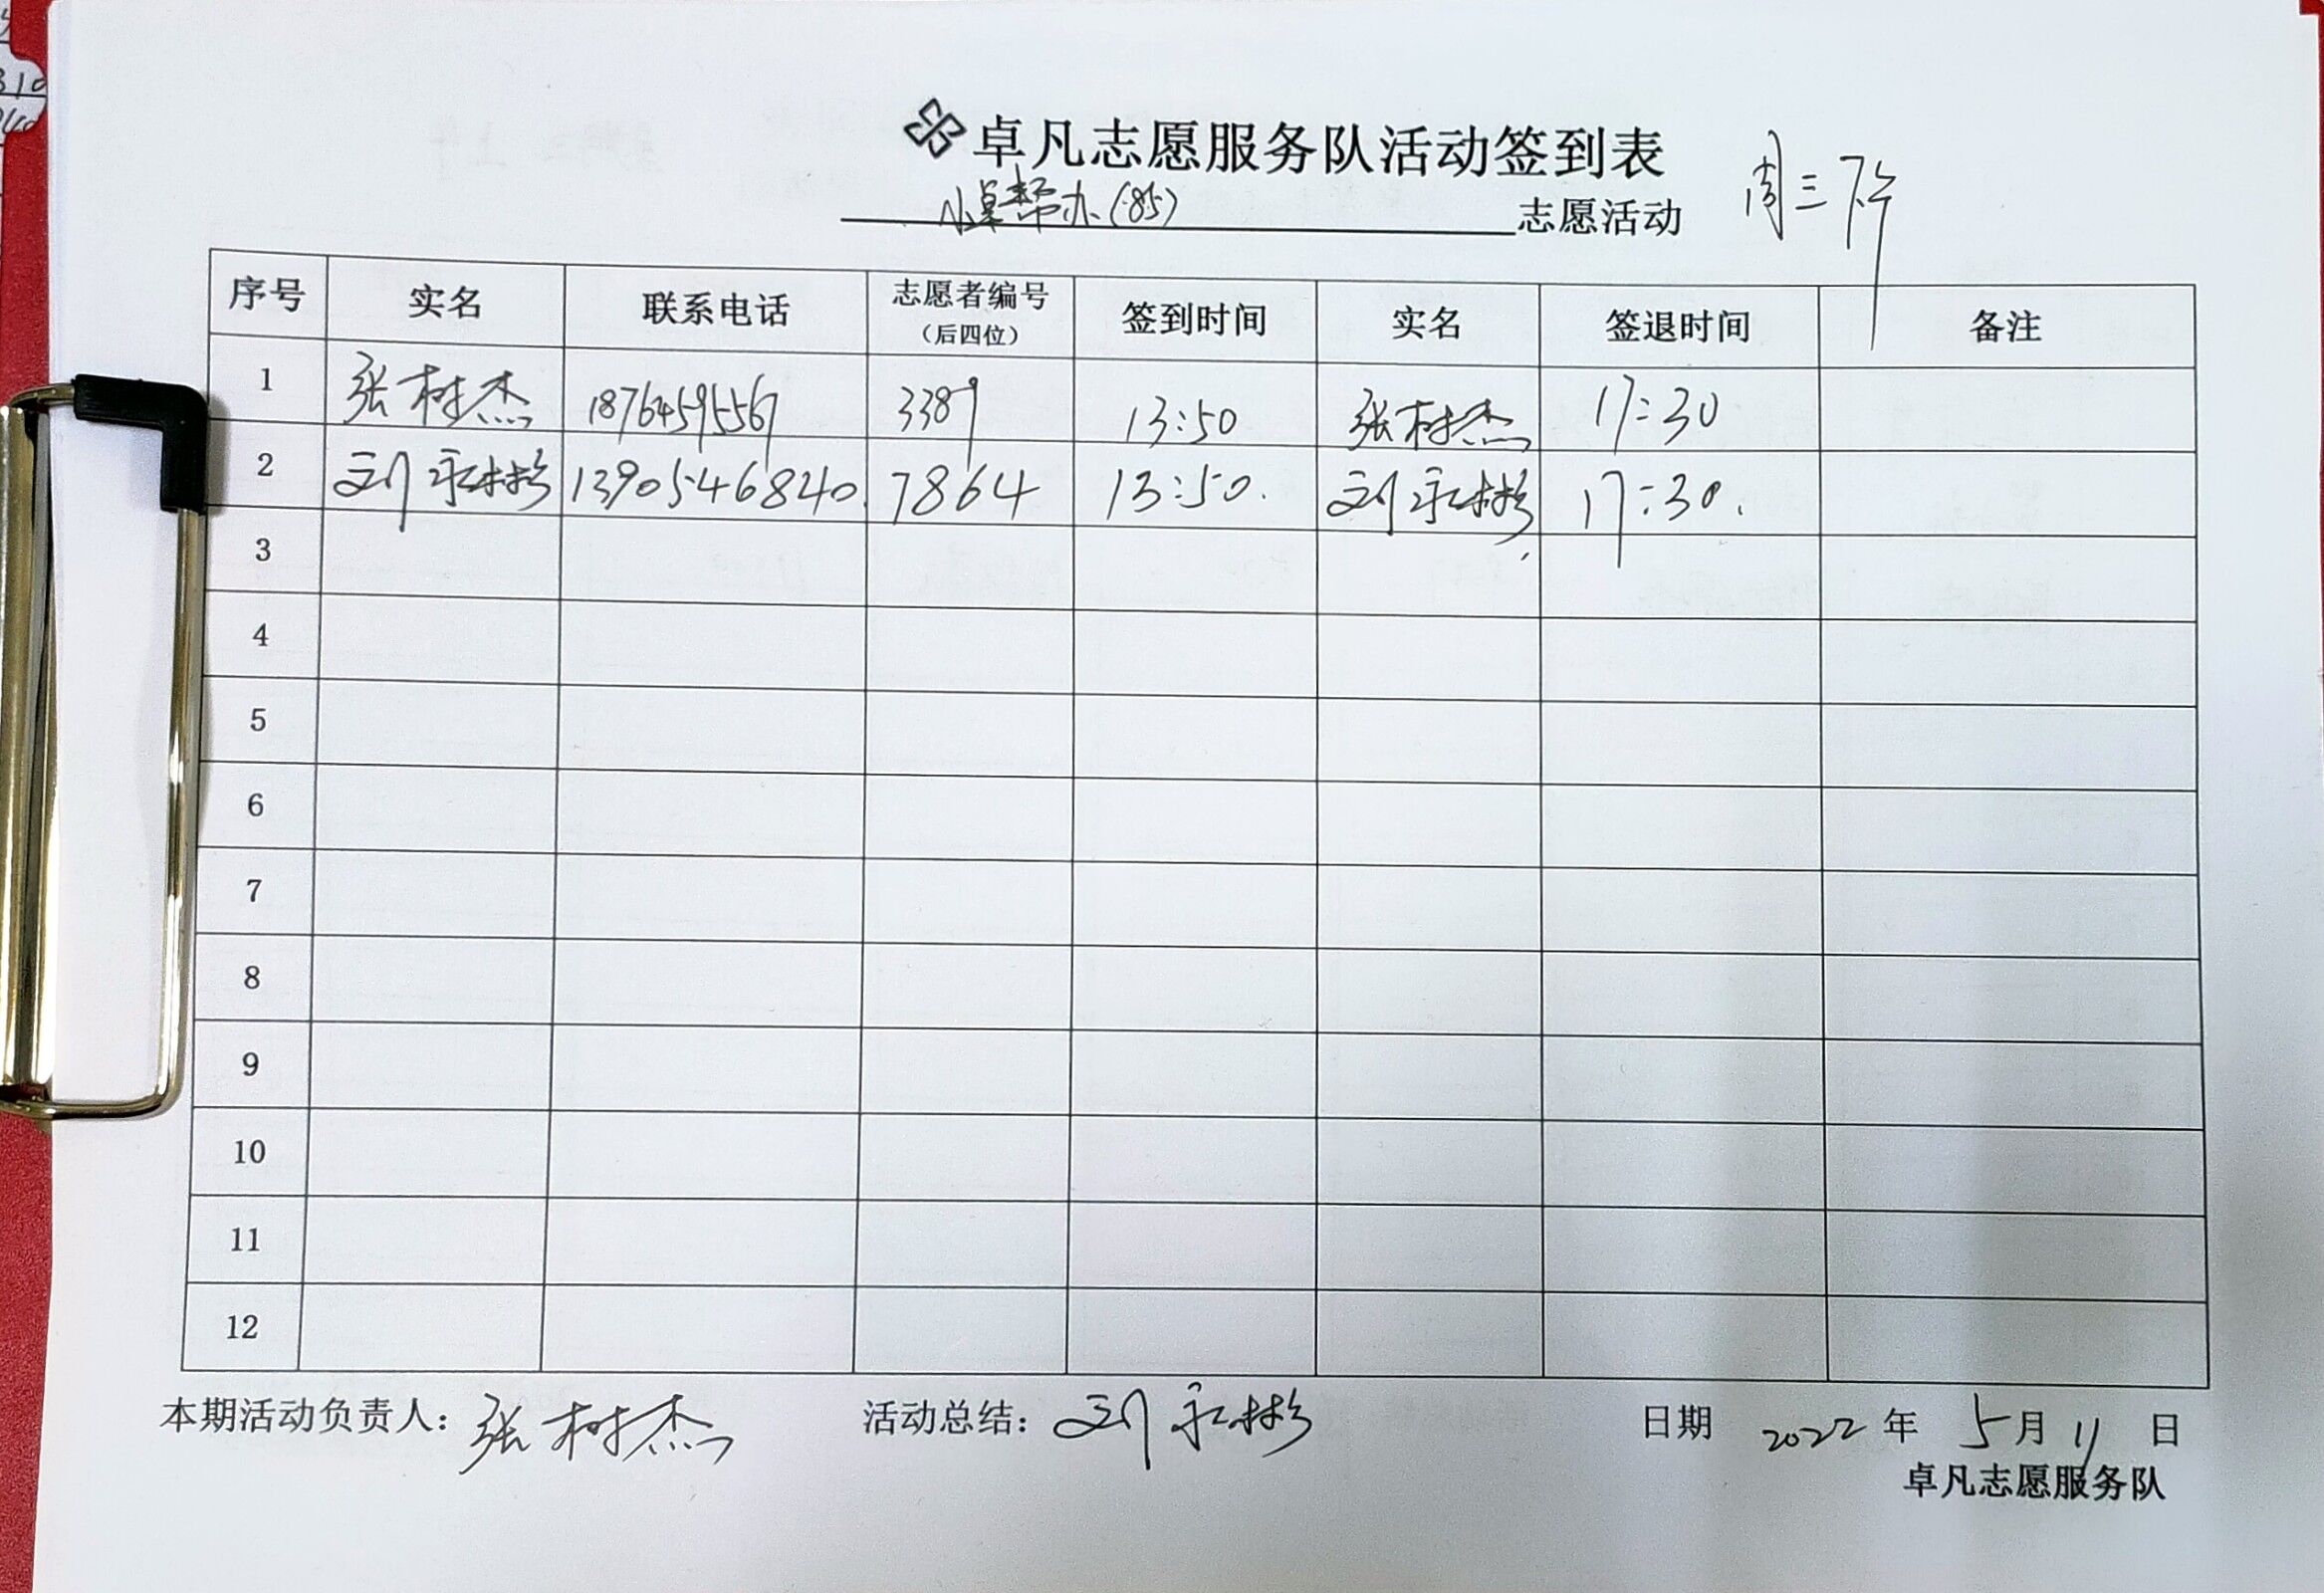 卓凡志愿服务队活动签到表
小卓帮办(85) 志愿活动 周三下午
序号 实名 联系电话 志愿者编号(后四位) 签到时间 实名 签退时间 备注
1 张树杰 18764595567 3389 13:50 张树杰 17:30
2 刘永彬 1390546840. 7864 13:50. 刘永彬 17:30.
3
4
5
6
7
8
9
10
11
12
本期活动负责人: 张树杰 活动总结: 刘永彬 日期 2022 年 5 月 11 日
卓凡志愿服务队